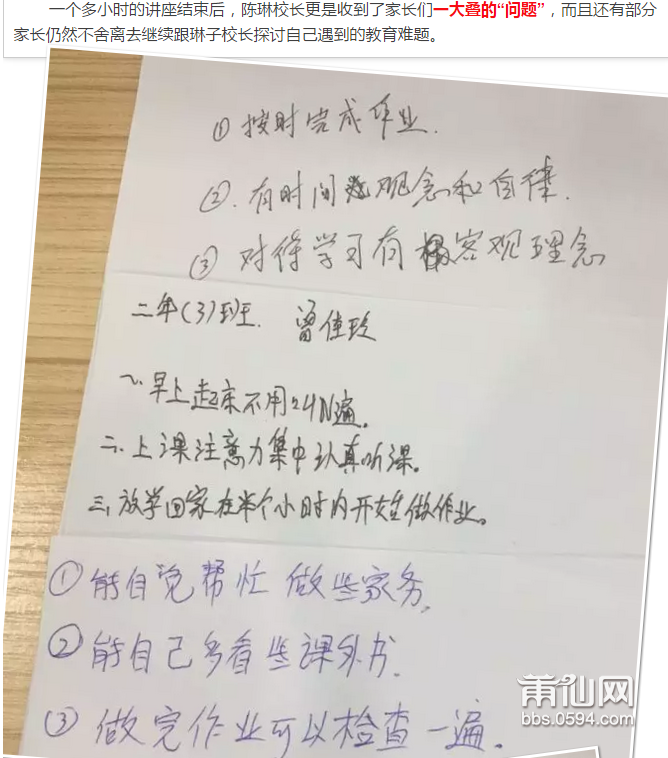 一个多小时的讲座结束后，陈琳校长更是收到了家长们一大叠的“问题”，而且还有部分
家长仍然不舍离去继续跟琳子校长探讨自己遇到的教育难题。
①按时完成作业.
②.有时间观念和自律.
③对待学习有客观理念
二年(3)班. 曾佳玲
一.早上起床不用叫N遍。
二.上课注意力集中认真听课。
三.放学回家在半个小时内开始做作业。
①能自觉帮忙做些家务.
②能自己多看些课外书.
③做完作业可以检查一遍。
莆仙网
bbs.0594.com